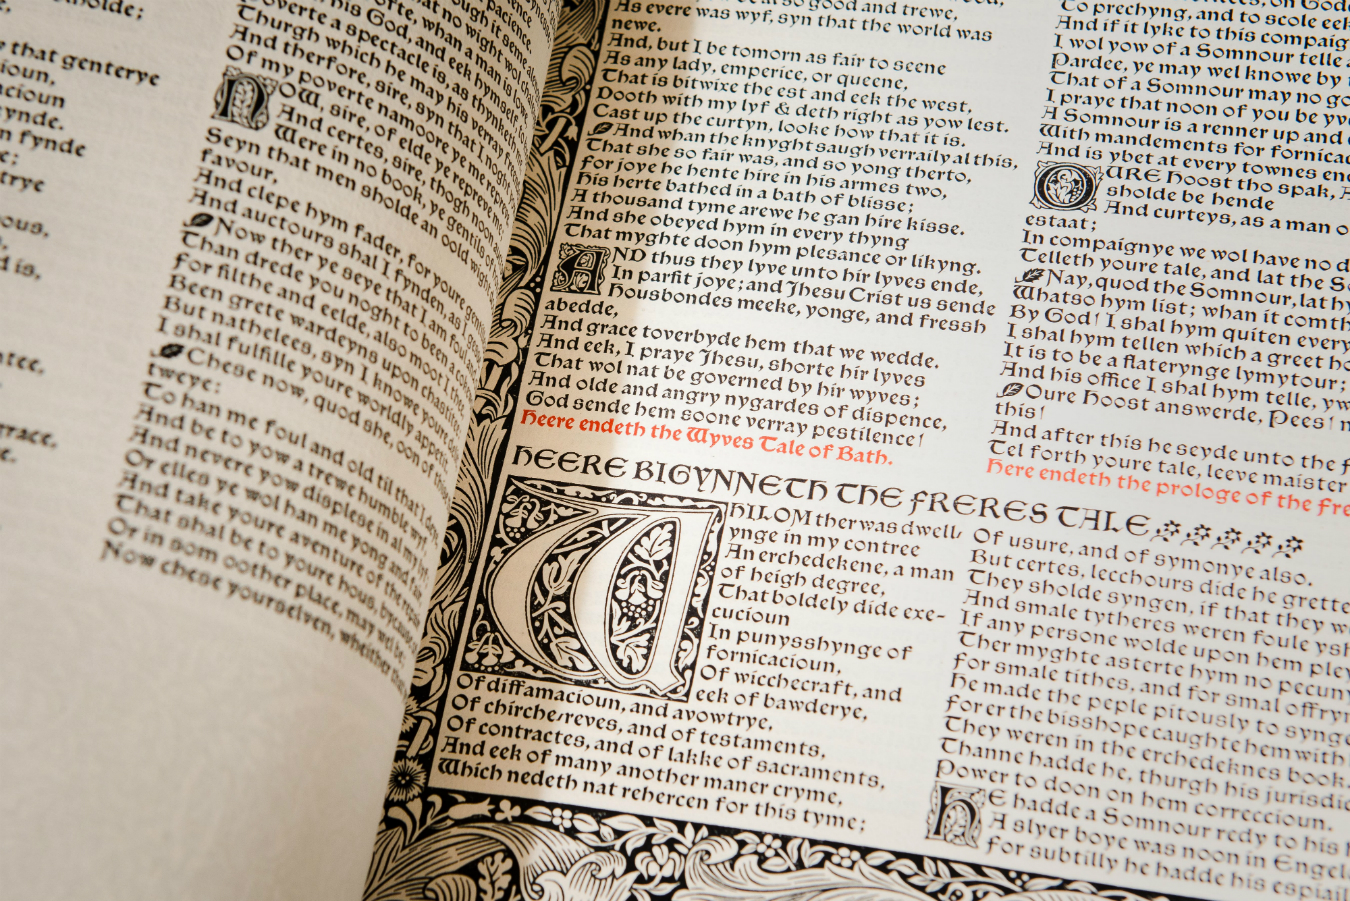 holde;
that genterye
cioun,
acioun
fynde.
n fynde
e;
trye
ous,
d is,
ntee.
grace.
e.
poverte a spectacle is, as thynketh me,
Thurgh which he may his verray
And therfore, sire, syn that I noght
Of my poverte namoore ye me repreve.
NOW, sire, of elde ye repreve me:
And certes, sire, thogh noon
Were in no book, ye gentils of
Seyn that men sholde an oold wight
favour,
And clepe hym fader, for youre
And auctours shal I fynden, as I
Now ther ye seye that I am foul
Than drede you noght to been a
For filthe and eelde, also moot I thee,
Been grete wardeyns upon chastitee.
But nathelees, syn I knowe youre
I shal fulfille youre worldly appetit.
Chese now, quod she, oon of thise
tweye:
To han me foul and old til that I
And be to yow a trewe humble wyf,
And nevere yow displese in al my lyf,
Or elles ye wol han me yong and fair
And take youre aventure of the
That shal be to youre hous, bycause
Or in som oother place, may wel be.
Now chese yourselven, wheither
so good and trewe,
As evere was wyf, syn that the world was
newe.
And, but I be tomorn as fair to seene
As any lady, emperice, or queene,
That is bitwixe the est and eek the west,
Dooth with my lyf & deth right as yow lest.
Cast up the curtyn, looke how that it is.
And whan the knyght saugh verraily al this,
That she so fair was, and so yong therto,
For joye he hente hire in his armes two,
His herte bathed in a bath of blisse;
A thousand tyme arewe he gan hire kisse.
And she obeyed hym in every thyng
That myghte doon hym plesance or likyng.
AND thus they lyve unto hir lyves ende,
In parfit joye; and Jhesu Crist us sende
Housbondes meeke, yonge, and fressh
abedde,
And grace toverbyde hem that we wedde.
And eek, I praye Jhesu, shorte hir lyves
That wol nat be governed by hir wyves;
And olde and angry nygardes of dispence,
God sende hem soone verray pestilence!
Heere endeth the Wyves Tale of Bath.
To prechyng, and to scole eek
And if it lyke to this compaig
I wol yow of a Somnour telle a
Pardee, ye may wel knowe by
That of a Somnour may no go
I praye that noon of you be yv
A Somnour is a renner up and
With mandements for fornicac
And is ybet at every townes end
OURE Hoost tho spak, A
sholde be hende
And curteys, as a man o
estaat;
In compaignye we wol have no d
Telleth youre tale, and lat the So
Nay, quod the Somnour, lat hy
Whatso hym list; whan it comth
By God! I shal hym quiten every
I shal hym tellen which a greet ho
It is to be a flaterynge lymytour;
And his office I shal hym telle, yw
Oure Hoost answerde, Pees! n
this!
And after this he seyde unto the f
Tel forth youre tale, leeve maister
Here endeth the prologe of the Fre
HEERE BIGYNNETH THE FRERES TALE
WHILOM ther was dwell-
ynge in my contree
An erchedekene, a man
of heigh degree,
That boldely dide exe-
cucioun
In punysshynge of
fornicacioun,
Of wicchecraft, and
eek of bawderye,
Of diffamacioun, and avowtrye,
Of chirche-reves, and of testaments,
Of contractes, and of lakke of sacraments,
And eek of many another maner cryme,
Which nedeth nat rehercen for this tyme;
Of usure, and of symonye also.
But certes, lecchours dide he grette
They sholde syngen, if that they we
And smale tytheres weren foule ysh
If any persone wolde upon hem pley
Ther myghte asterte hym no pecuny
For smale tithes, and for smal offryn
He made the peple pitously to synge
For er the bisshope caughte hem with
They weren in the erchedeknes book.
Thanne hadde he, thurgh his jurisdic
Power to doon on hem correccioun.
HE hadde a Somnour redy to his
A slyer boye was noon in Engel
For subtilly he hadde his espiail